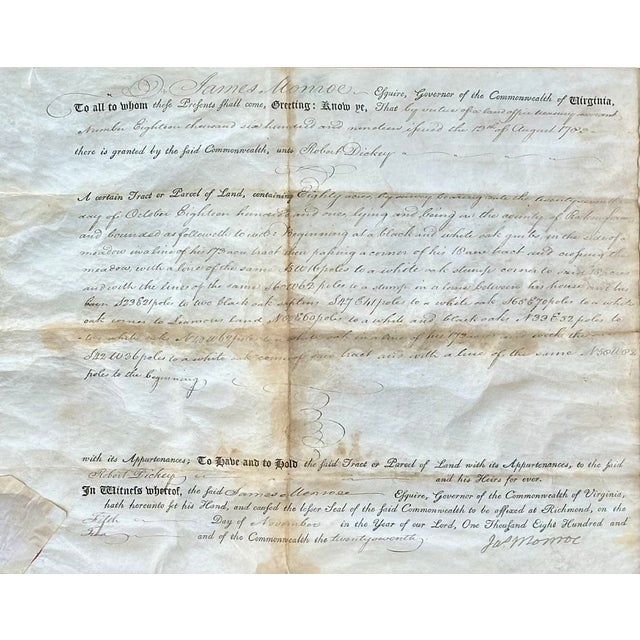 James Monroe Esquire, Governor of the Commonwealth of Virginia,
To all to whom these Presents shall come, Greeting: Know ye, That by virtue of a land office treasury warrant
number Eighteen thousand six hundred and nineteen issued the 13th of August
there is granted by the said Commonwealth, unto Robert Dickey
A certain Tract or Parcel of Land, containing Eighty acres, by survey bearing date the twenty
day of October Eighteen hundred and one, lying and being in the county of
and bounded as followeth to wit: Beginning at a black and white oak in the side of
meadow in a line of his 173 acre tract then passing a corner of his tract and crossing the
meadow with a line of the same W 16 poles to a white oak stump corner to said
and with the line of the same 62 poles to a stump in a lane between his house and his
barn 21 poles to two black oak saplins S 27 E 61 poles to a white oak E 70 poles to a white
oak corner to land E 60 poles to a white and black oak N 33 E 32 poles to
poles in a line of his
S 22 W 36 poles to a white oak corner of tract and with a line of the same
poles to the beginning
with its Appurtenances; To Have and to Hold the said Tract or Parcel of Land with its Appurtenances, to the said
Robert Dickey and his Heirs for ever.
In Witness whereof, the said James Monroe Esquire, Governor of the Commonwealth of Virginia,
hath hereunto set his Hand, and caused the lesser Seal of the said Commonwealth to be affixed at Richmond, on the
Fifth Day of November in the Year of our Lord, One Thousand Eight Hundred and
and of the Commonwealth the twenty seventh
Jas Monroe